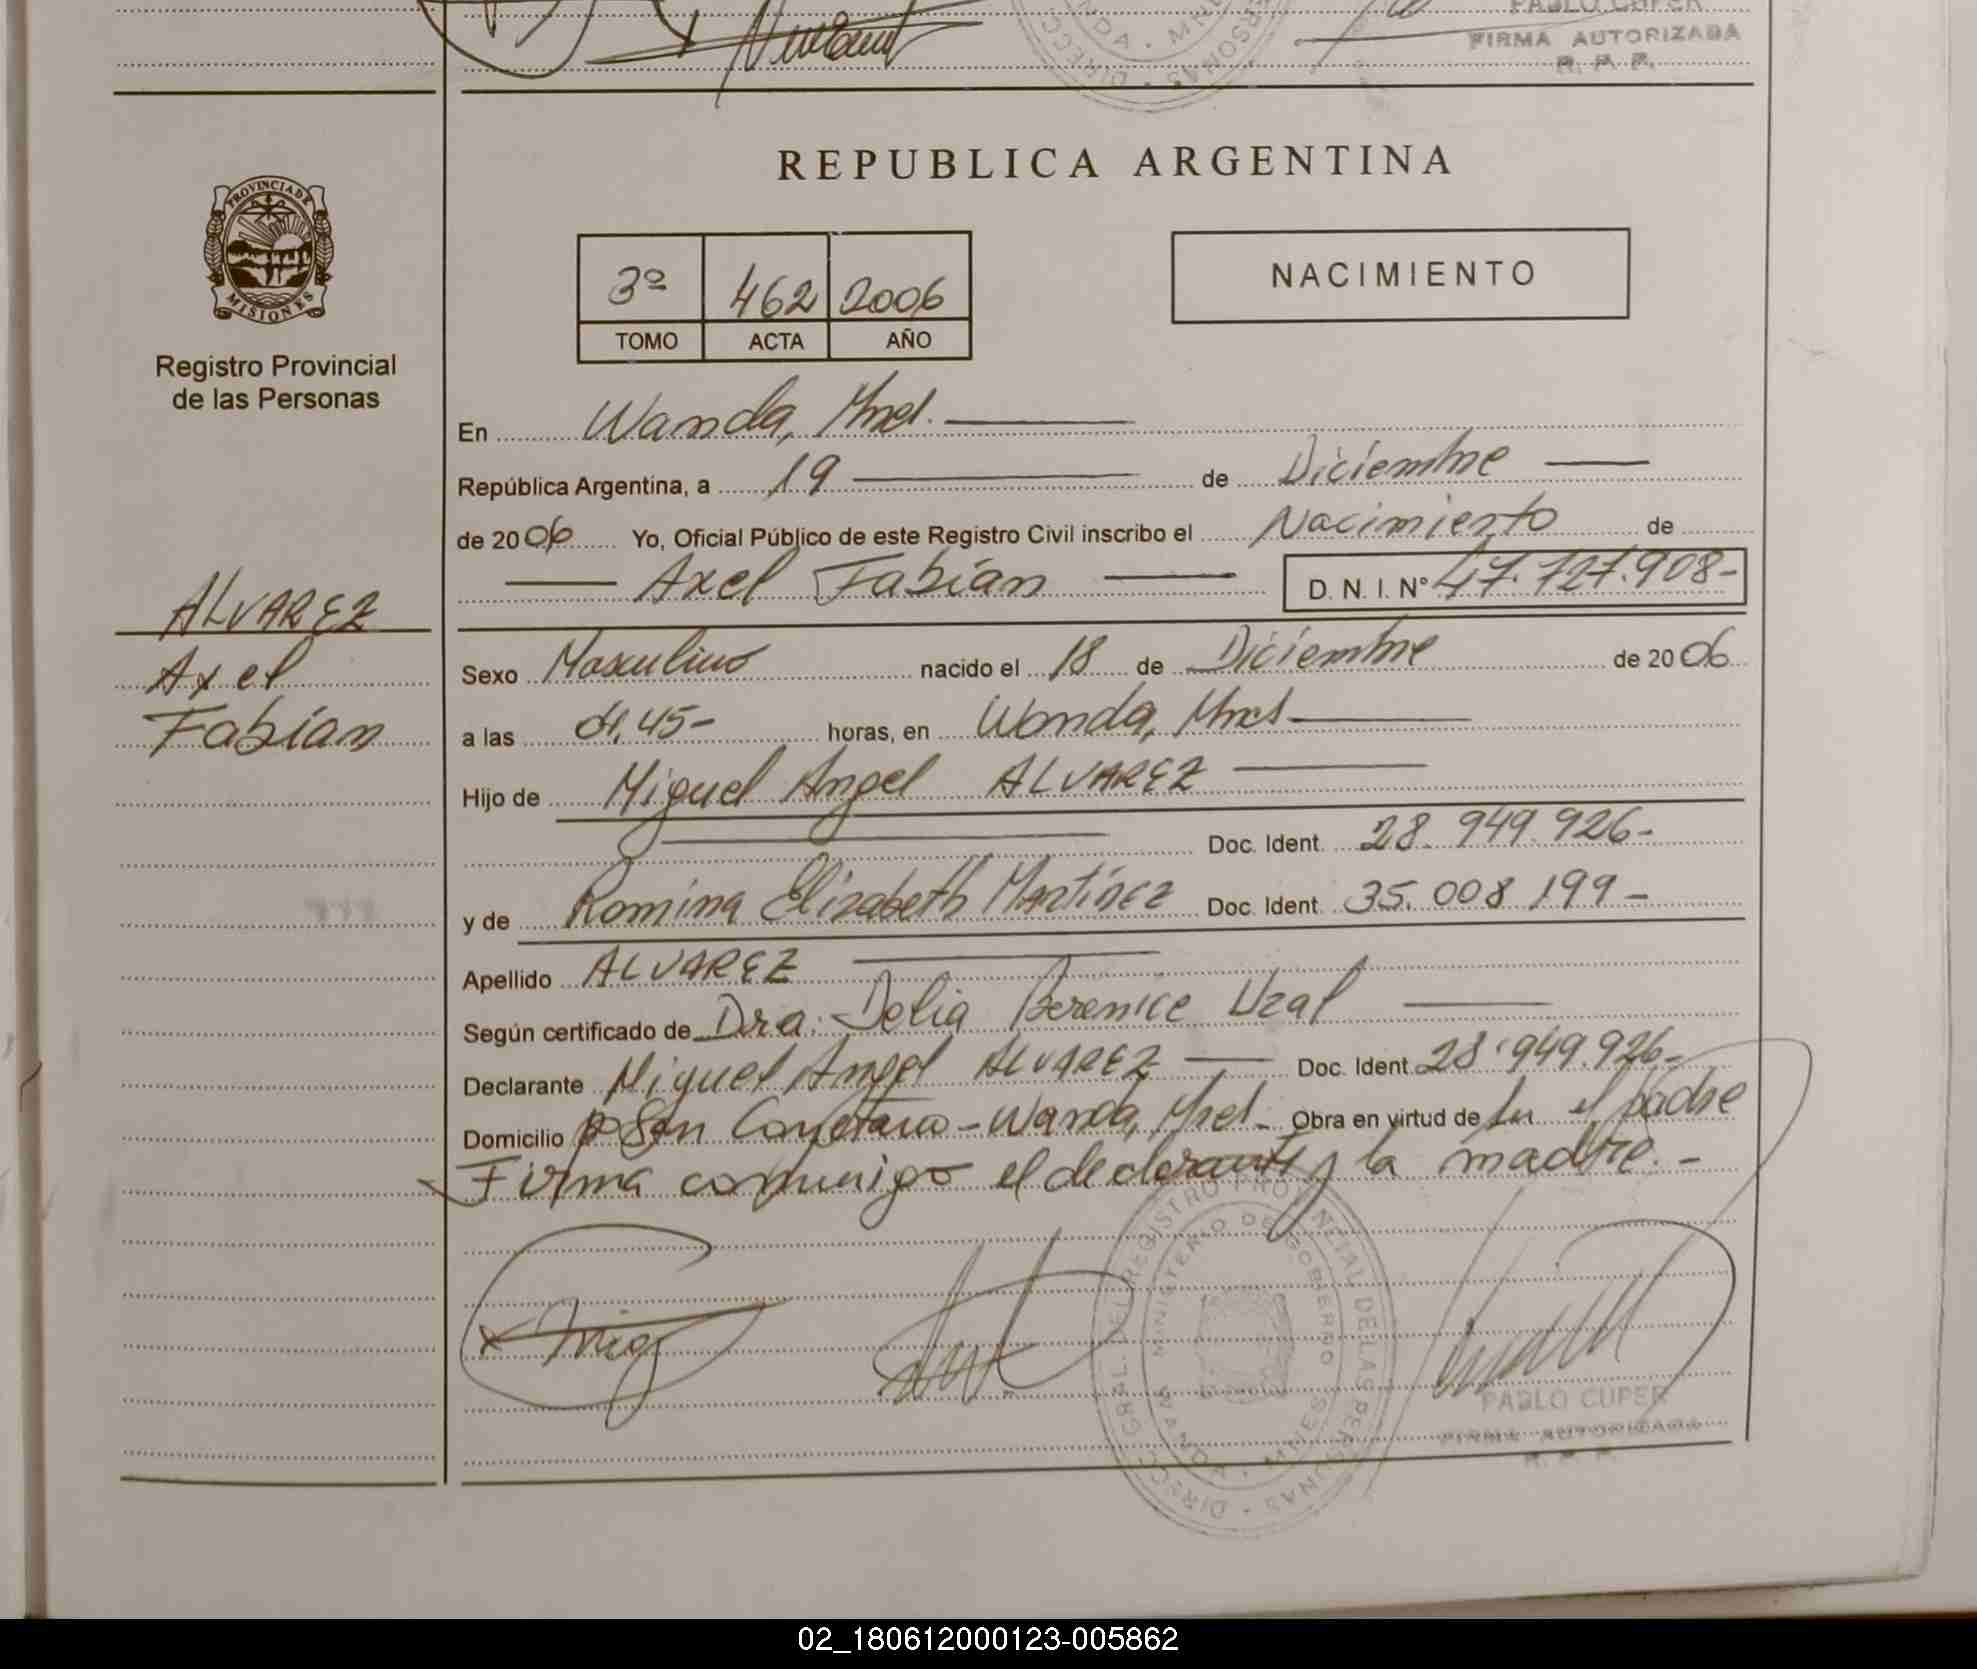 PABLO CUPER
FIRMA AUTORIZADA
R. P. P.
REPUBLICA ARGENTINA
PROVINCIA DE
MISIONES
Registro Provincial
de las Personas
3º 462 2006
TOMO ACTA AÑO
NACIMIENTO
En Wanda, Mnes.
República Argentina, a 19 de Diciembre
de 2006 Yo, Oficial Público de este Registro Civil inscribo el Nacimiento de
Axel Fabián D. N. I. Nº 47.727.908-
ALVAREZ
Axel
Fabián
Sexo Masculino nacido el 18 de Diciembre de 2006
a las 01,45- horas, en Wanda, Mnes
Hijo de Miguel Angel ALVAREZ
Doc. Ident. 28.949.926-
y de Romina Elizabeth Martínez Doc. Ident. 35.008.199-
Apellido ALVAREZ
Según certificado de Dra. Delia Berenice Uzal
Declarante Miguel Angel ALVAREZ Doc. Ident. 28.949.926-
Domicilio Bº San Cayetano - Wanda, Mnes. Obra en virtud de ser el padre
Firma conmigo el declarante y la madre.-
DIRECC. GRAL. DEL REGISTRO PROVINCIAL DE LAS PERSONAS
MINISTERIO DE GOBIERNO
WANDA - MNES
PABLO CUPER
FIRMA AUTORIZADA
R. P. P.
02_180612000123-005862